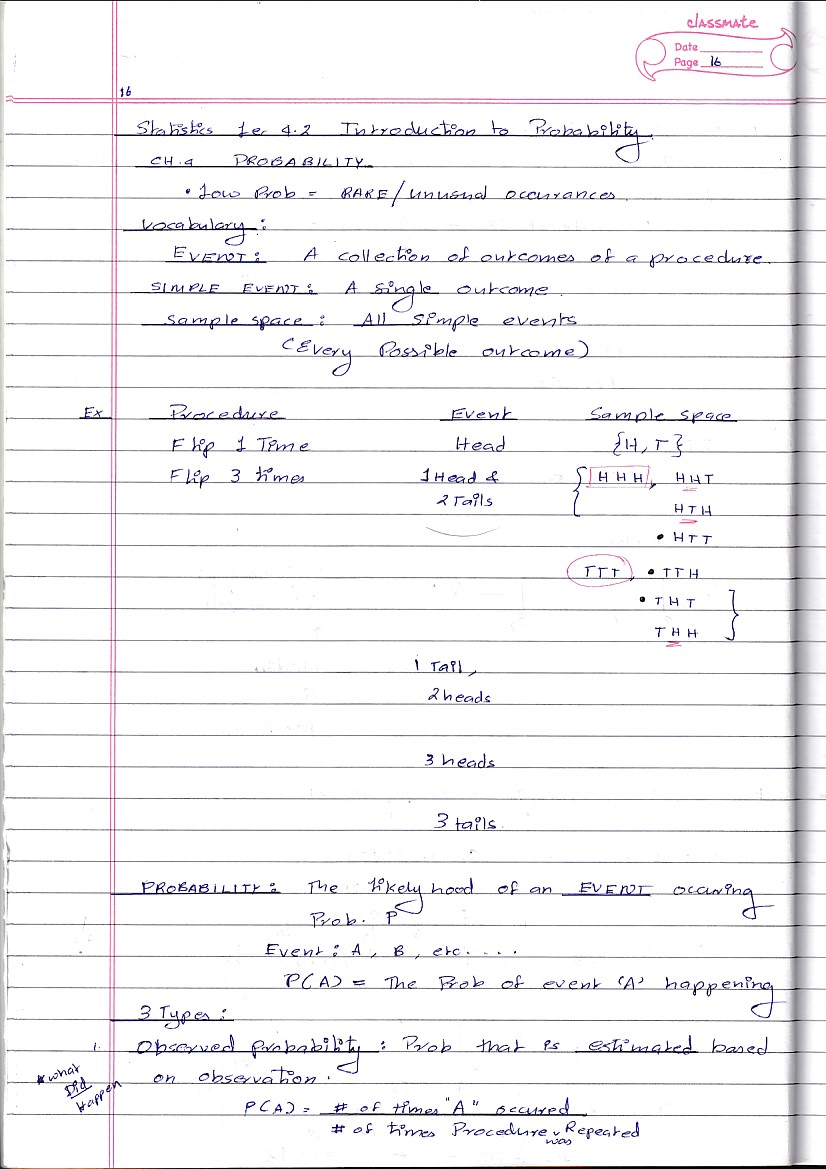 classmate
Date
Page 16
16
Statistics Lec 4.2 Introduction to Probability
CH.4 PROBABILITY
• Low Prob = RARE/unusual occurances
Vocabulary:
EVENT: A collection of outcomes of a procedure.
SIMPLE EVENT: A single outcome.
Sample space: All simple events
(Every Possible outcome)
Ex Procedure Event Sample space
Flip 1 Time Head {H, T}
Flip 3 times 1 Head & { HHH, HHT
2 Tails HTH
• HTT
TTT, • TTH
• THT }
THH
1 Tail,
2 heads
3 heads
3 tails
PROBABILITY: The likelyhood of an EVENT occuring
Prob. P
Event: A, B, etc....
P(A) = The Prob of event 'A' happening
3 Types:
1. Observed probability: Prob that is estimated based
on observation.
* what Did Happen
P(A) = # of times "A" occured
# of times Procedure was Repeated